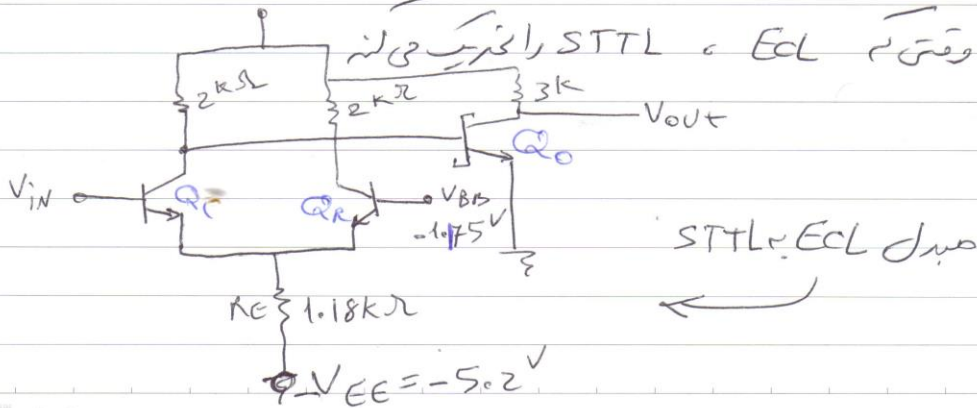 وقتی که ECL ، STTL را تحریک می کند
2kΩ
2kΩ
3k
Vout
Qo
VIN
QR
VBB
-1.175V
مبدل ECL به STTL
RE 1.18kΩ
-VEE = -5.2V